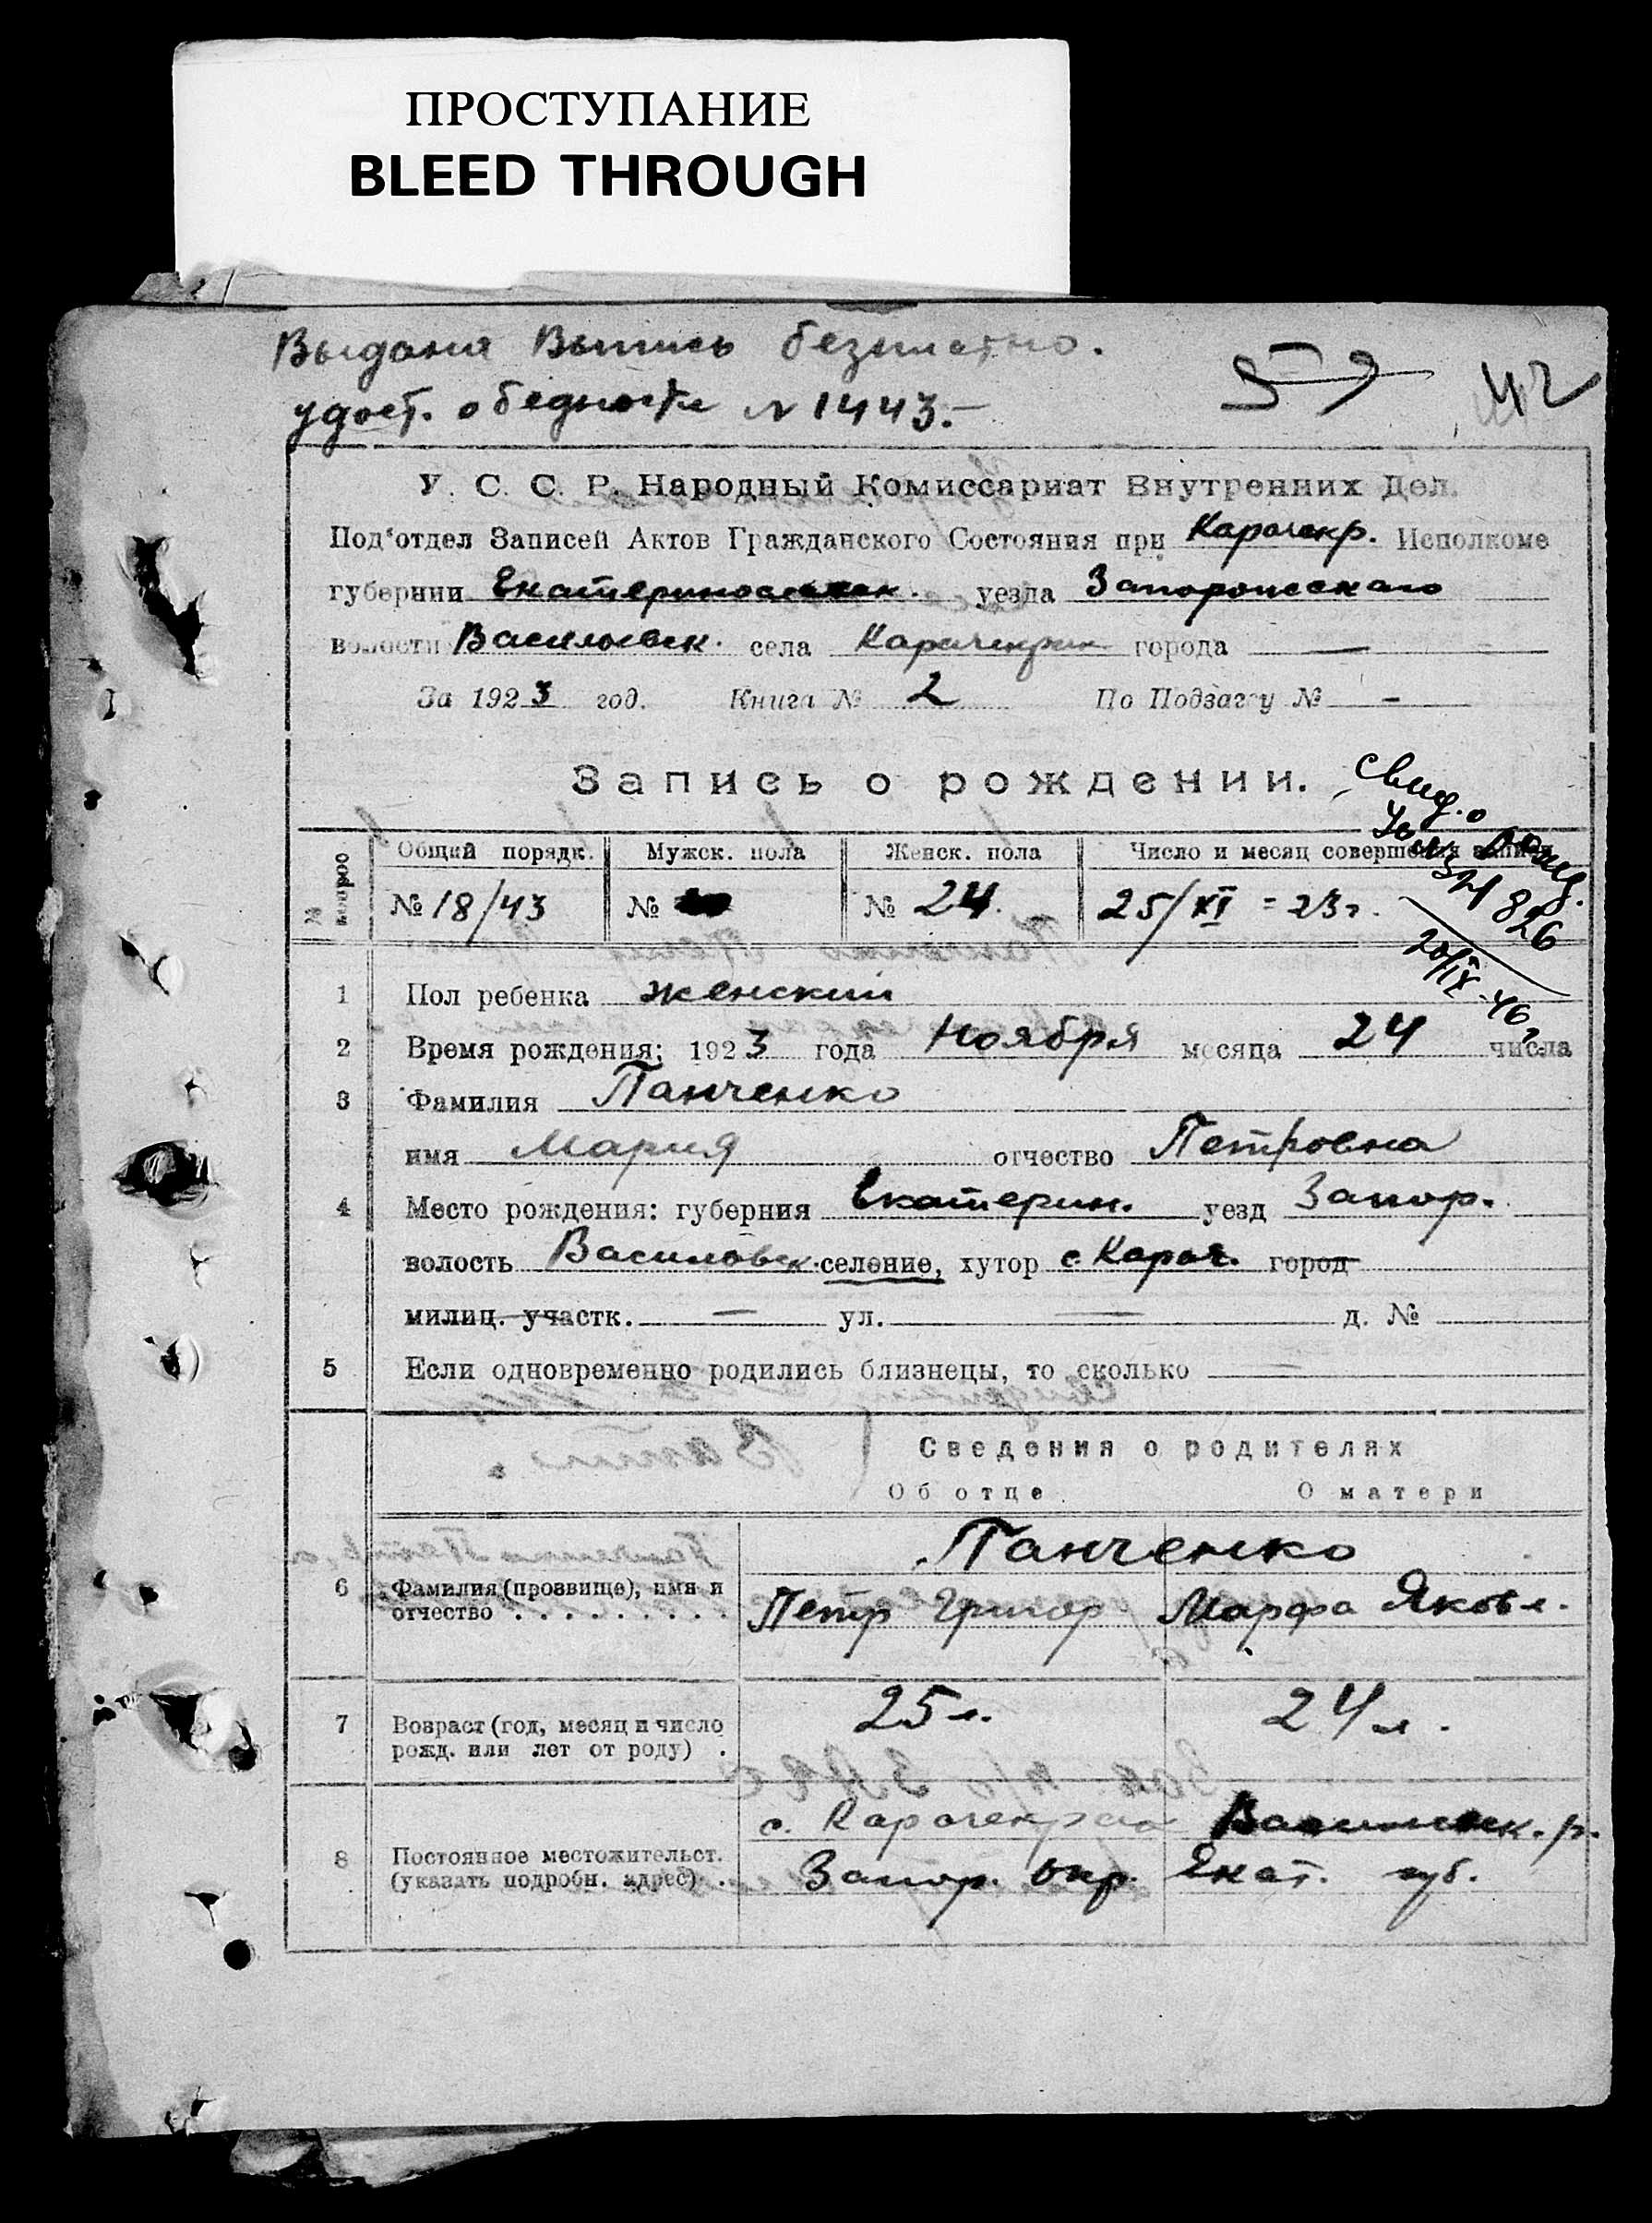 ПРОСТУПАНИЕ
BLEED THROUGH
Выдана Выпись безплатно.
удост. о бедности № 1443.-
59 42
У. С. С. Р. Народный Комиссариат Внутренних Дел.
Под'отдел Записей Актов Гражданского Состояния при Карачекр. Исполкоме
губернии Екатеринославск. уезда Запорожскаго
волости Васильевск. села Карачекрак города —
За 1923 год. Книга № 2 По Подзагсу № -
Запись о рождении.
свид. о рожд.
826
20/IX-46 г.
№ вопрос Общий порядк. Мужск. пола Женск. пола Число и месяц совершения записи
№ 18/43 № № 24. 25/XI = 23 г.
1 Пол ребенка женский
2 Время рождения: 1923 года Ноября месяца 24 числа
3 Фамилия Панченко
имя Мария отчество Петровна
4 Место рождения: губерния Екатерин. уезд Запор.
волость Василовск. селение, хутор с. Карач. город
милиц. участк. — ул. — д. №
5 Если одновременно родились близнецы, то сколько —
Сведения о родителях
Об отце О матери
Панченко
6 Фамилия (прозвище), имя и
отчество . . . . . . . . . Петр Григор Марфа Яковл.
7 Возраст (год, месяц и число
рожд. или лет от роду) . 25 л. 24 л.
с. Карачекрак Васильевск. р.
8 Постоянное местожительст.
(указать подробн. адрес) . Запор. окр. Екат. губ.